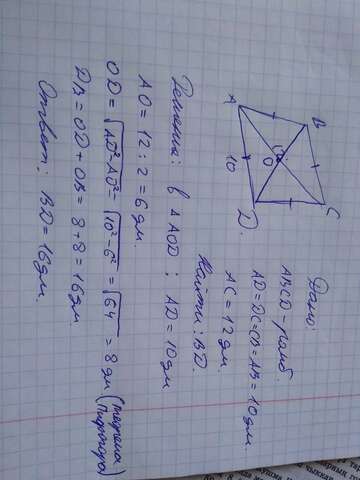 Дано:
ABCD - ромб.
AD = DC = CB = AB = 10 дм
AC = 12 дм.
Найти: BD.
A
B
C
D
O
10
Решение: в △AOD; AD = 10 дм
AO = 12 : 2 = 6 дм.
OD = √AD² - AO² = √10² - 6² = √64 = 8 дм (теорема Пифагора)
DB = OD + OB = 8 + 8 = 16 дм.
Ответ: BD = 16 дм.